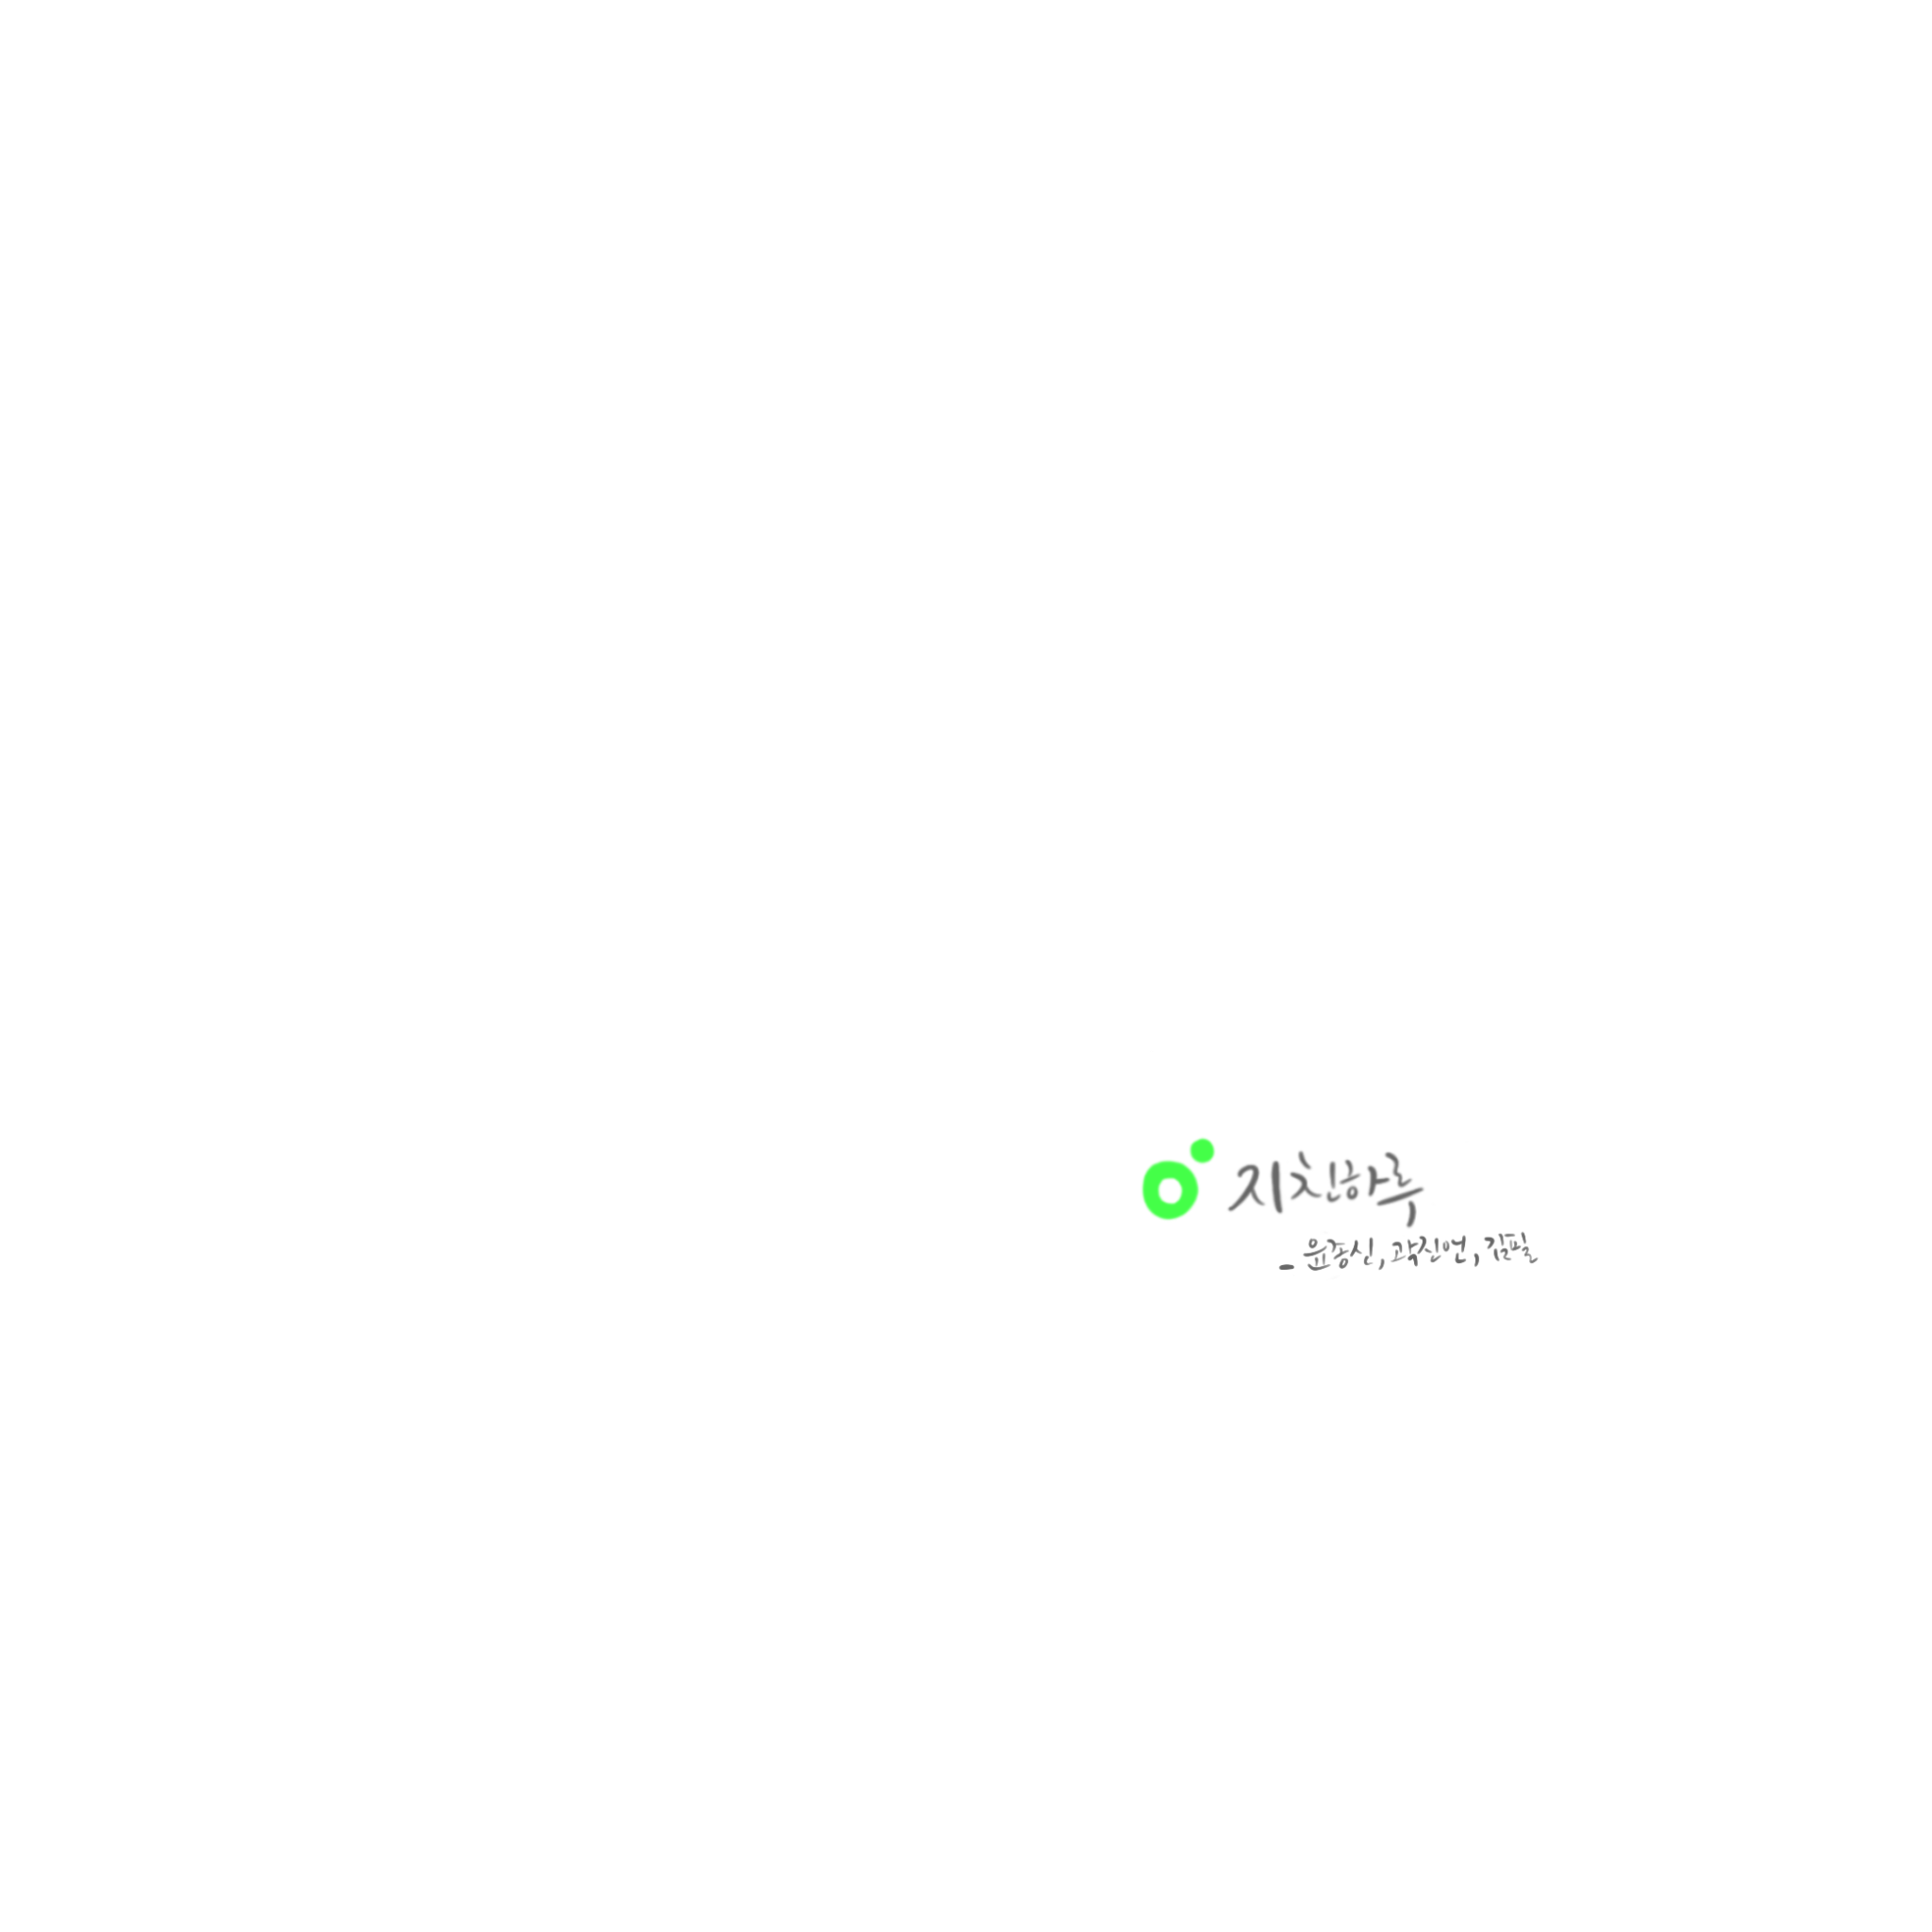 지친하루
- 윤종신, 곽진언, 김필